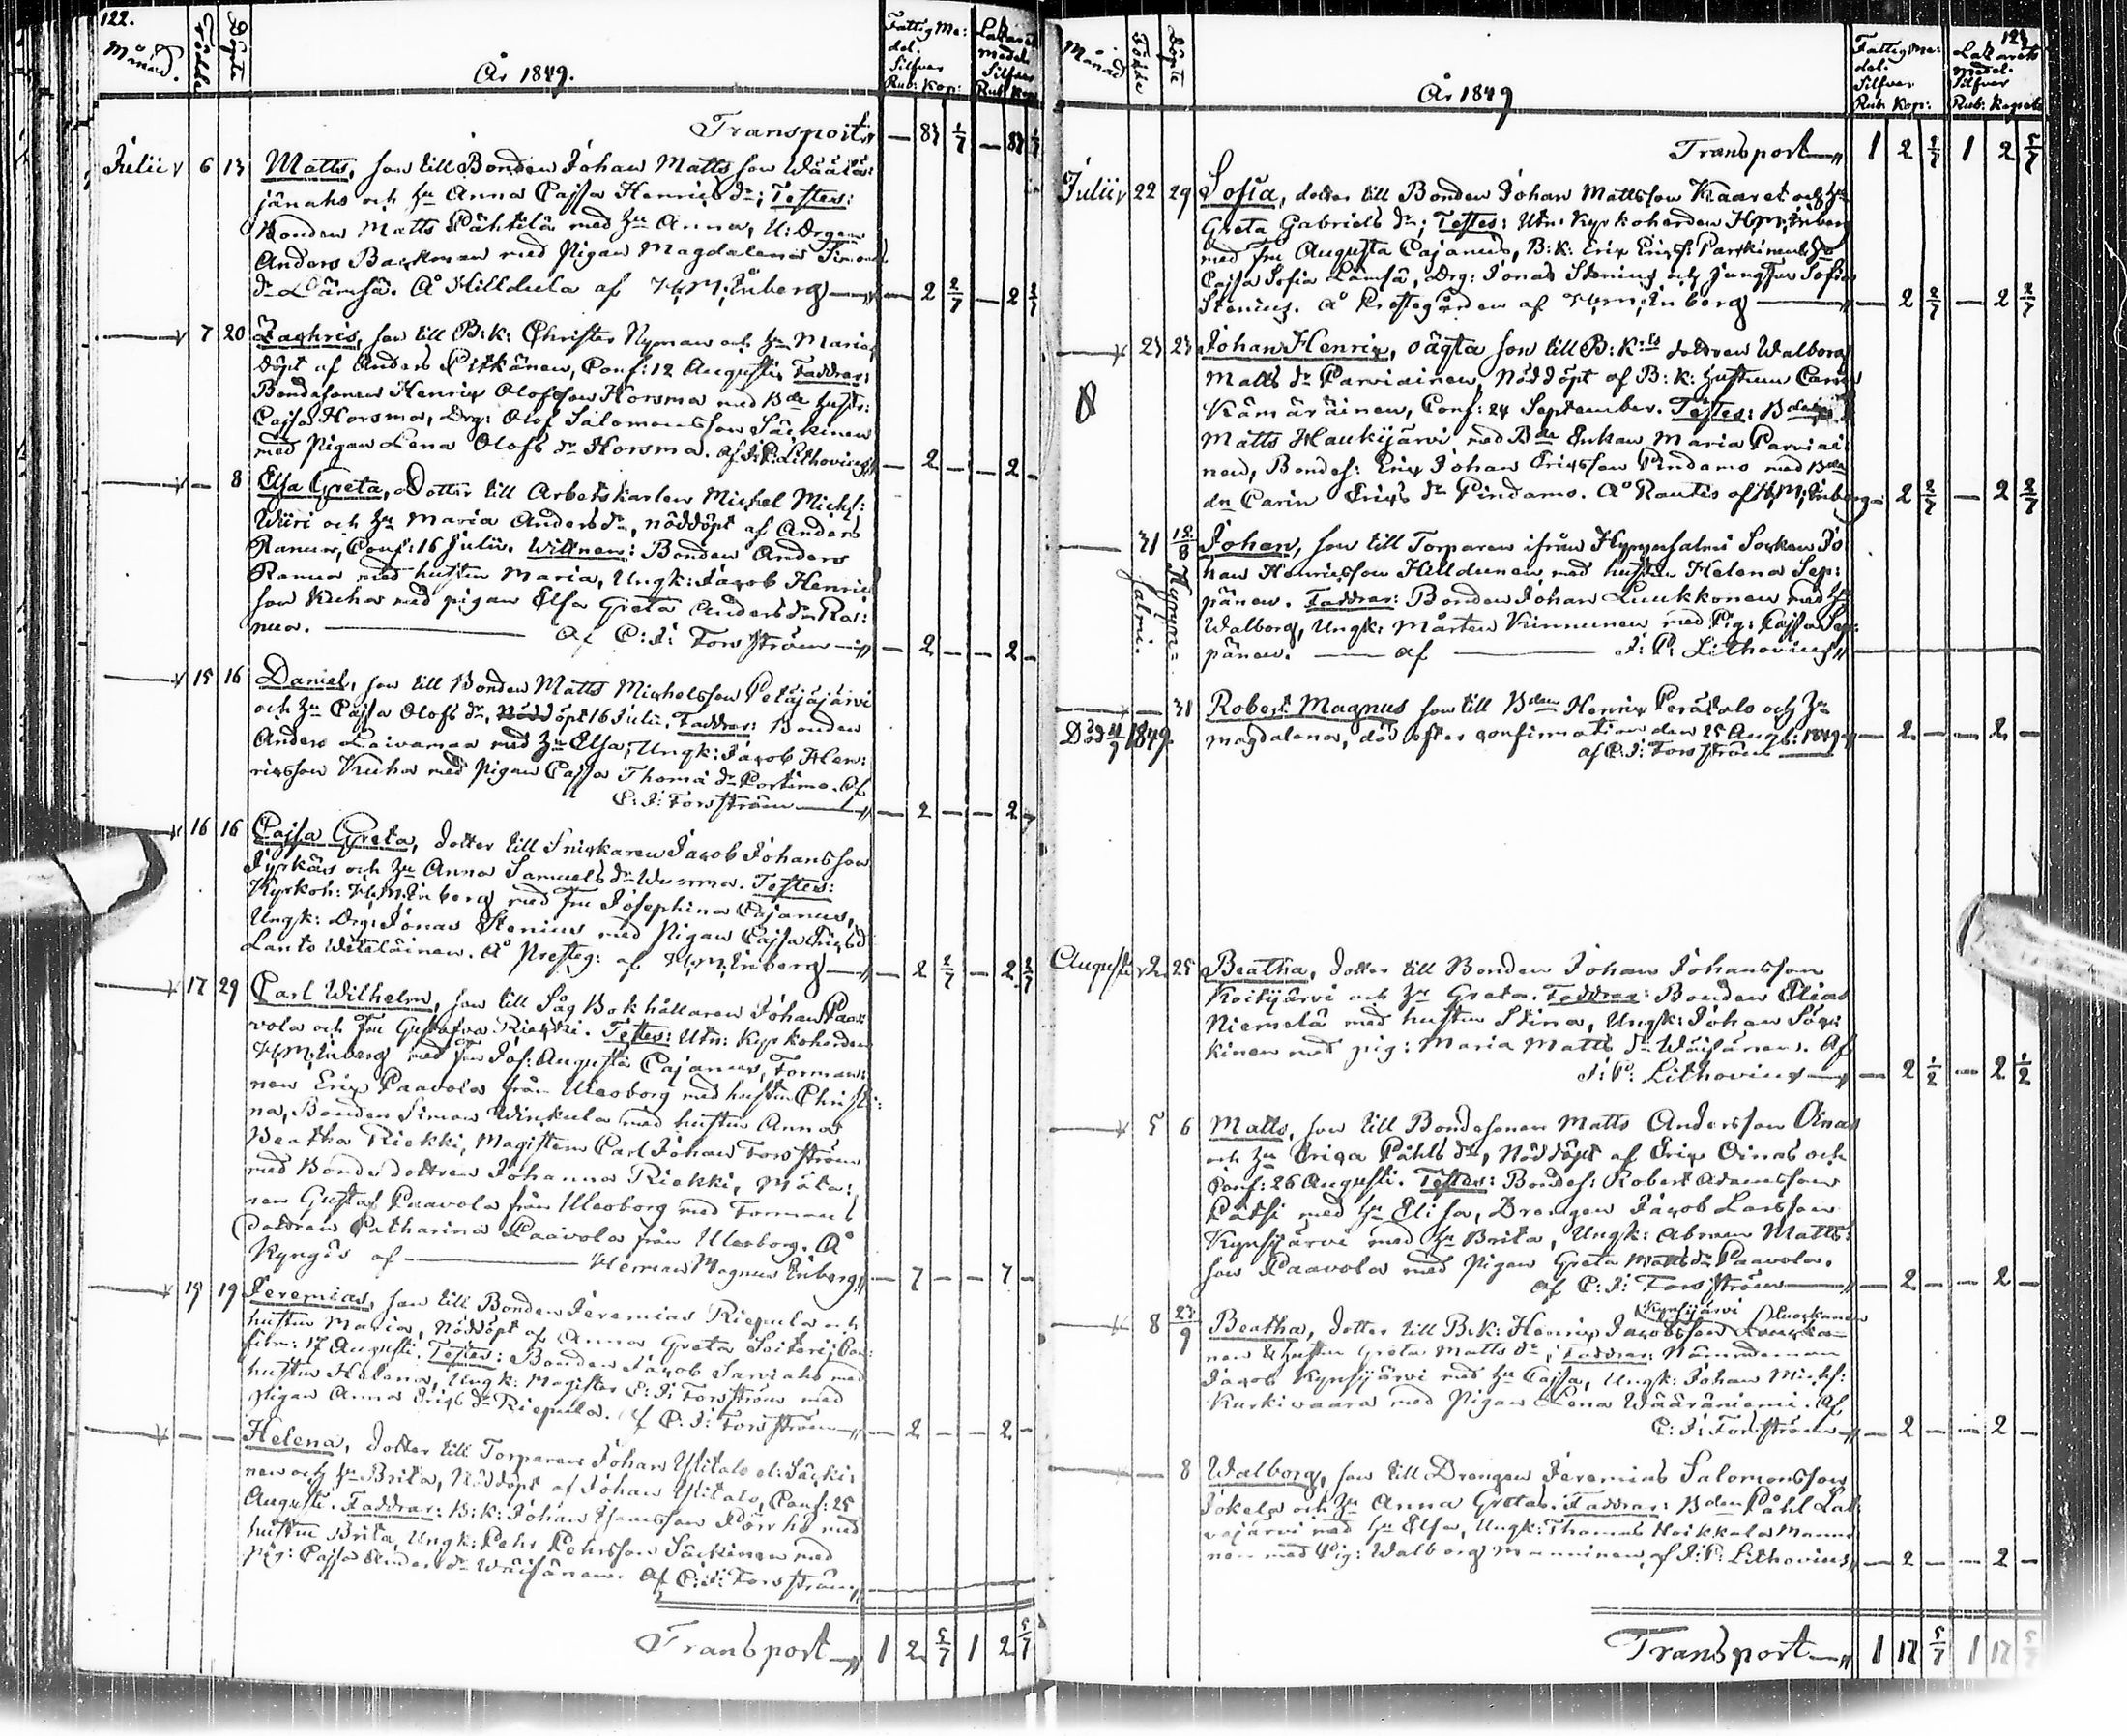 122.
Månad.
Födde
Döpte
År 1849.
Fattig Me:
del.
Silfver
Rub: Kop:
Lazarets
medel
Silfver
Rub: Kop
Transport — 83 1/7 — 83 1/7
Julii 6 13 Matts, son till Bonden Johan Mattsson Väätä:
jänaho och hu Anna Cajsa Henrics dr; Testes:
Bonden Matts Pähtilä med hu Anna, U: Drgen
Anders Backman med Pigan Magdalena Simons
dr Lämsä. Å Hilldula af H: M: Enberg — 2 2/7 — 2 2/7
7 20 Zachris, son till B: k: Christer Nyman och hu Maria,
döpt af Anders Pitkänen, Conf: 12 Augusti, Faddrar:
Bondesonen Henric Olofsson Horsma med Bde hustr:
Cajsa Horsma, Drg: Olof Salomonsson Säckinen
med Pigan Lena Olofs dr Horsma. Af J: P: Lithovius — 2 — — 2 —
— 8 Elsa Greta, Dotter till Arbetskarlen Michel Michs:
Wiiri och hu Maria Anders dr, nöddöpt af Anders
Ranua, Conf: 16 Julii. Wittnen: Bonden Anders
Ranua med hustru Maria, Ungk: Jacob Henric
son Kuha med pigan Elsa Greta Anders dr Ra:
nua. — Af C: J: Forsström — 2 — — 2 —
15 16 Daniel, son till Bonden Matts Michelsson Petäjäjärvi
och hu Cajsa Olofs dr, döpt 16 Julii. Faddrar: Bonden
Anders Laivamaa med hu Elsa, Ungk: Jacob Hen:
ricsson Kuha med Pigan Cajsa Thoma dr Portimo. Af
C: J: Forsström — 2 — — 2 —
16 16 Cajsa Greta, dotter till Snickaren Jacob Johansson
Jyrkäs och hu Anna Samuels dr Wuorma. Testes:
Kyrkoh: H: M: Enberg med Fru Josephina Cajanus,
Ungk: Drg: Jonas Stenius med Pigan Cajsa Erics d
Lanto Wäteläinen. Å Presteg: af H: M: Enberg — 2 2/7 — 2 2/7
17 29 Carl Wilhelm, son till Såg Bokhållaren Johan Paa:
vola och Fru Gustafva Riekki. Testes: Utn: Kyrkoherden
H: M: Enberg med fru Jos: Augusta Cajanus, Forman:
nen Eric Paavola från Uleåborg med hustru Christi:
na, Bonden Simon Winkula med hustru Anna
Beatha Riekki, Magistern Carl Johan Forsström
med Bondedottren Johanna Riekki, Måla:
ren Gustaf Paavola från Uleåborg med Formans
dottren Catharina Paavola från Uleåborg. Å
Kyngäs af — Herman Magnus Enberg — 7 — — 7 —
19 19 Jeremias, son till Bonden Jeremias Riepula och
hustru Maria, Nöddöpt af Anna Greta Soiteri, Con:
firm: 17 Augusti. Testes: Bonden Jacob Sarviaho med
hustru Helena, Ungk: Magister C: J: Forsström med
Pigan Anna Erics dr Riepula. Af C: J: Forsström — 2 — — 2 —
— — Helena, dotter till Torparen Johan Ylitalo el: Säcki:
nen och hu Brita, Nöddöpt af Johan Ylitalo, Conf: 25
Augusti. Faddrar: B: k: Johan Thomsson Pörrhö med
hustru Brita, Ungk: Pehr Pehrsson Säckinen med
pig: Cajsa Anders dr Wäisänen. Af C: J: Forsström
Transport — 1 2 5/7 1 2 5/7
123
Månad
Födde
Döpte
År 1849
Fattig me:
del.
Silfver
Rub: Kop:
Lazarets
medel.
Silfver
Rub: Kopek
Transport — 1 2 5/7 1 2 5/7
Julii 22 29 Sofia, dotter till Bonden Johan Mattsson Kaaret och hu
Greta Gabriels dr; Testes: Utn: Kyrkoherden H: M: Enberg
med Fru Augusta Cajanus, B: k: Eric Erics: Parkkinen
Cajsa Sofia Lämsä, Drg: Jonas Stenius och jungfru Sofia
Stenius. Å Prestegården af H: M: Enberg — 2 2/7 — 2 2/7
23 23 Johan Henric, oägta son till B: K:ds dottren Walborg
Matts dr Parviainen, Nöddöpt af B: k: hustrun Carin
Kämäräinen, Conf: 24 September. Testes:
Matts Haukijärvi med Bde Enkan Maria Parviai:
nen, Bondes: Eric Johan Ericsson Pindamo med Bde
dn Carin Erics dr Pindamo. Å Rautio af H: M: Enberg — 2 2/7 — 2 2/7
31 12/8 Hyryn= salmi. Johan, son till Torparen ifrån Hyrynsalmi Socken Jo
han Henricsson Hilldunen, med hustru Helena Sep:
pänen. Faddrar: Bonden Johan Luukkonen med hu
Walborg, Ungk: Mårten Kinnunen med Pig: Cajsa Sep:
pänen. — af — J: P: Lithovius
— 31 Robert Magnus son till Bden Henric Perätalo och hu
Magdalena, död efter confirmation den 25 Aug: 1849 — 2 — — 2 —
Död 11/9 1849.
af C: J: Forsström
Augusti 2 25 Beatha, dotter till Bonden Johan Johansson
Koitijärvi och hu Greta. Faddrar: Bonden Elias
Niemelä med hustru Stina, Ungk: Johan Säc:
kinen med pig: Maria Matts dr Wäisänen. Af
J: P: Lithovius — 2 1/2 — 2 1/2
5 6 Matts, son till Bondesonen Matts Andersson Oinas
och hu Erica Påhls dr, Nöddöpt af Eric Oinas och
Conf: 26 Augusti. Testes: Bondes: Robert Adamsson
Pätsi med hu Elisa, Drengen Jacob Larsson
Kynsijärvi med hu Brita, Ungk: Abram Matts:
son Paavola med Pigan Greta Matts dr Paavola.
af C: J: Forsström — 2 — — 2 —
8 23/9 Beatha, dotter till B: K: Henric Jacobsson
Kynsijärvi
nen & hustru Greta Matts dr; Faddrar: Nämndeman
Jacob Kynsijärvi med hu Cajsa, Ungk: Johan Michs:
Kurkivaara med Pigan Lena Wääräniemi. Af
C: J: Forsström — 2 — — 2 —
— 8 Walborg, son till Drengen Jeremias Salomonsson
Jokela och hu Anna Greta. Faddrar: Bden Påhl Lat:
vajärvi med hu Elsa, Ungk: Thomas Heikkala Manni
nen med Pig: Walborg Manninen, af J: P: Lithovius — 2 — — 2 —
Transport — 1 17 5/7 1 17 5/7